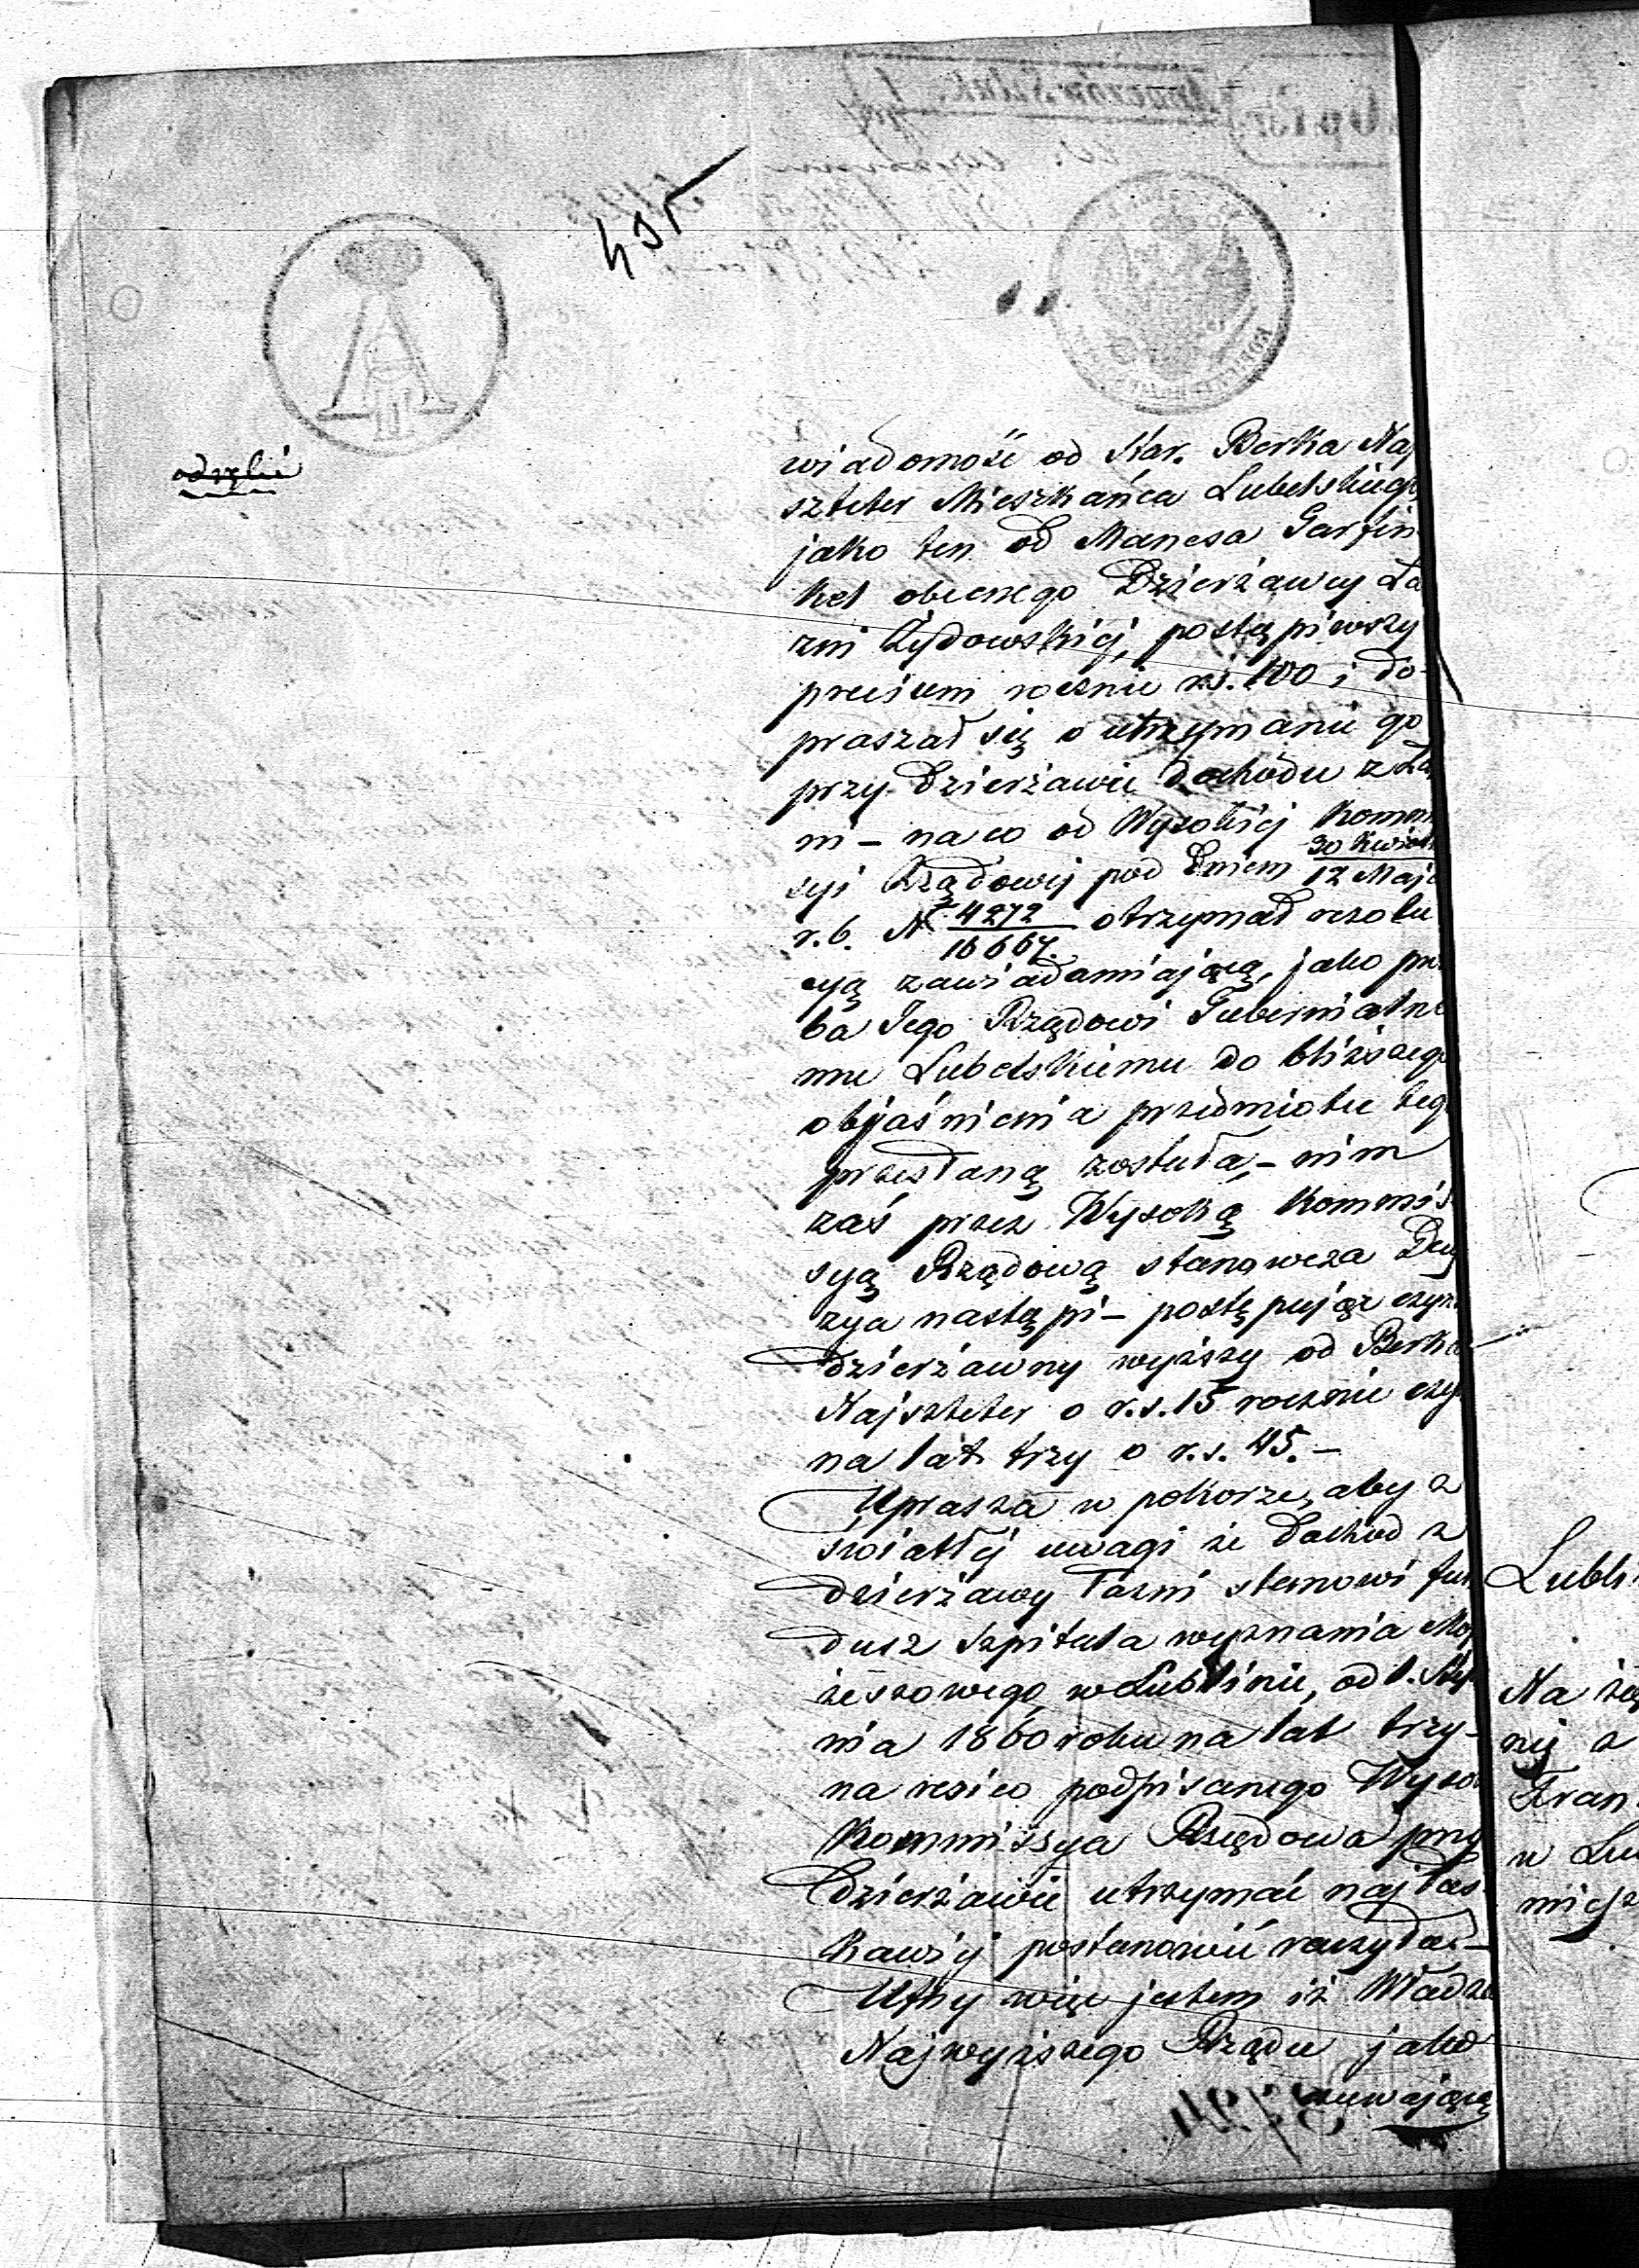 435
odszlić
wiadomość od Kar. Berka Naj
szteter Mieszkańca Lubelskiego
jako ten od Manesa Garfin
kel obecnego Dzierżawcy Ła
zni Żydowskiej, postąpiwszy
precium rocznie rs. 100 i do-
praszał się o utrzymanie go
przy Dzierżawie dochodu z Ła
ni – na co od Wysokiej Kommi
syi Rządowej pod Dniem 30 Kwiet / 12 Maja
r. b. N 4272 / 16667. otrzymał rezolu
cyą zawiadamiającą, jako proś
ba Jego Rządowi Gubernialne
mu Lubelskiemu do bliższego
objaśnienia przedmiotu tego
przesłaną została, – nim
zaś przez Wysoką Kommis
syą Rządową stanowcza Decy
zya nastąpi – postępując czynsz
dzierżawny wyższy od Berka
Najszteter o r. s. 15 rocznie czyli
na lat trzy o r. s. 45. –
Uprasza w pokorze, aby z
światłej uwagi że Dochód z
dzierżawy Łazni stanowi fun
dusz Szpitala wyznania Moj
żeszowego w Lublinie, od 1. Sty
nia 1860 roku na lat trzy –
na rzecz podpisanego Wysoka
Kommissya Rządowa przy
Dzierżawie utrzymać najłas
kawiej postanowić raczyła. –
Ufny więc jestem iż Władza
Najwyższego Rządu jako
czuwającą
Lubli
Na żą
nej z
Fran
w Lu
miesz